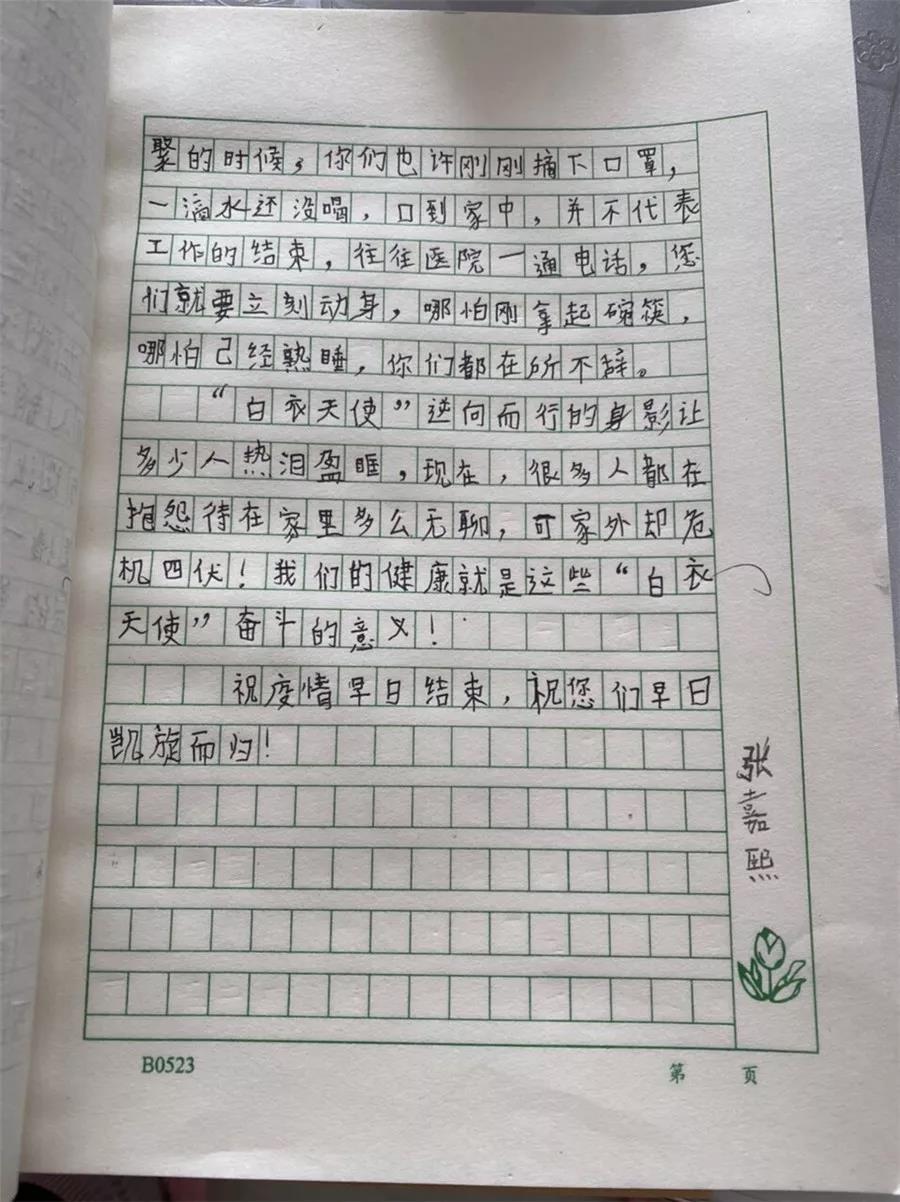 聚的时候，你们也许刚刚摘下口罩，
一滴水还没喝，口到家中，并不代表
工作的结束，往往医院一通电话，您
们就要立刻动身，哪怕刚拿起碗筷，
哪怕己经熟睡，你们都在所不辞。
“白衣天使”逆向而行的身影让
多少人热泪盈眶，现在，很多人都在
抱怨待在家里多么无聊，可家外却危
机四伏！我们的健康就是这些“白衣
天使”奋斗的意义！
祝疫情早日结束，祝您们早日
凯旋而归！
张嘉熙
B0523
第 页